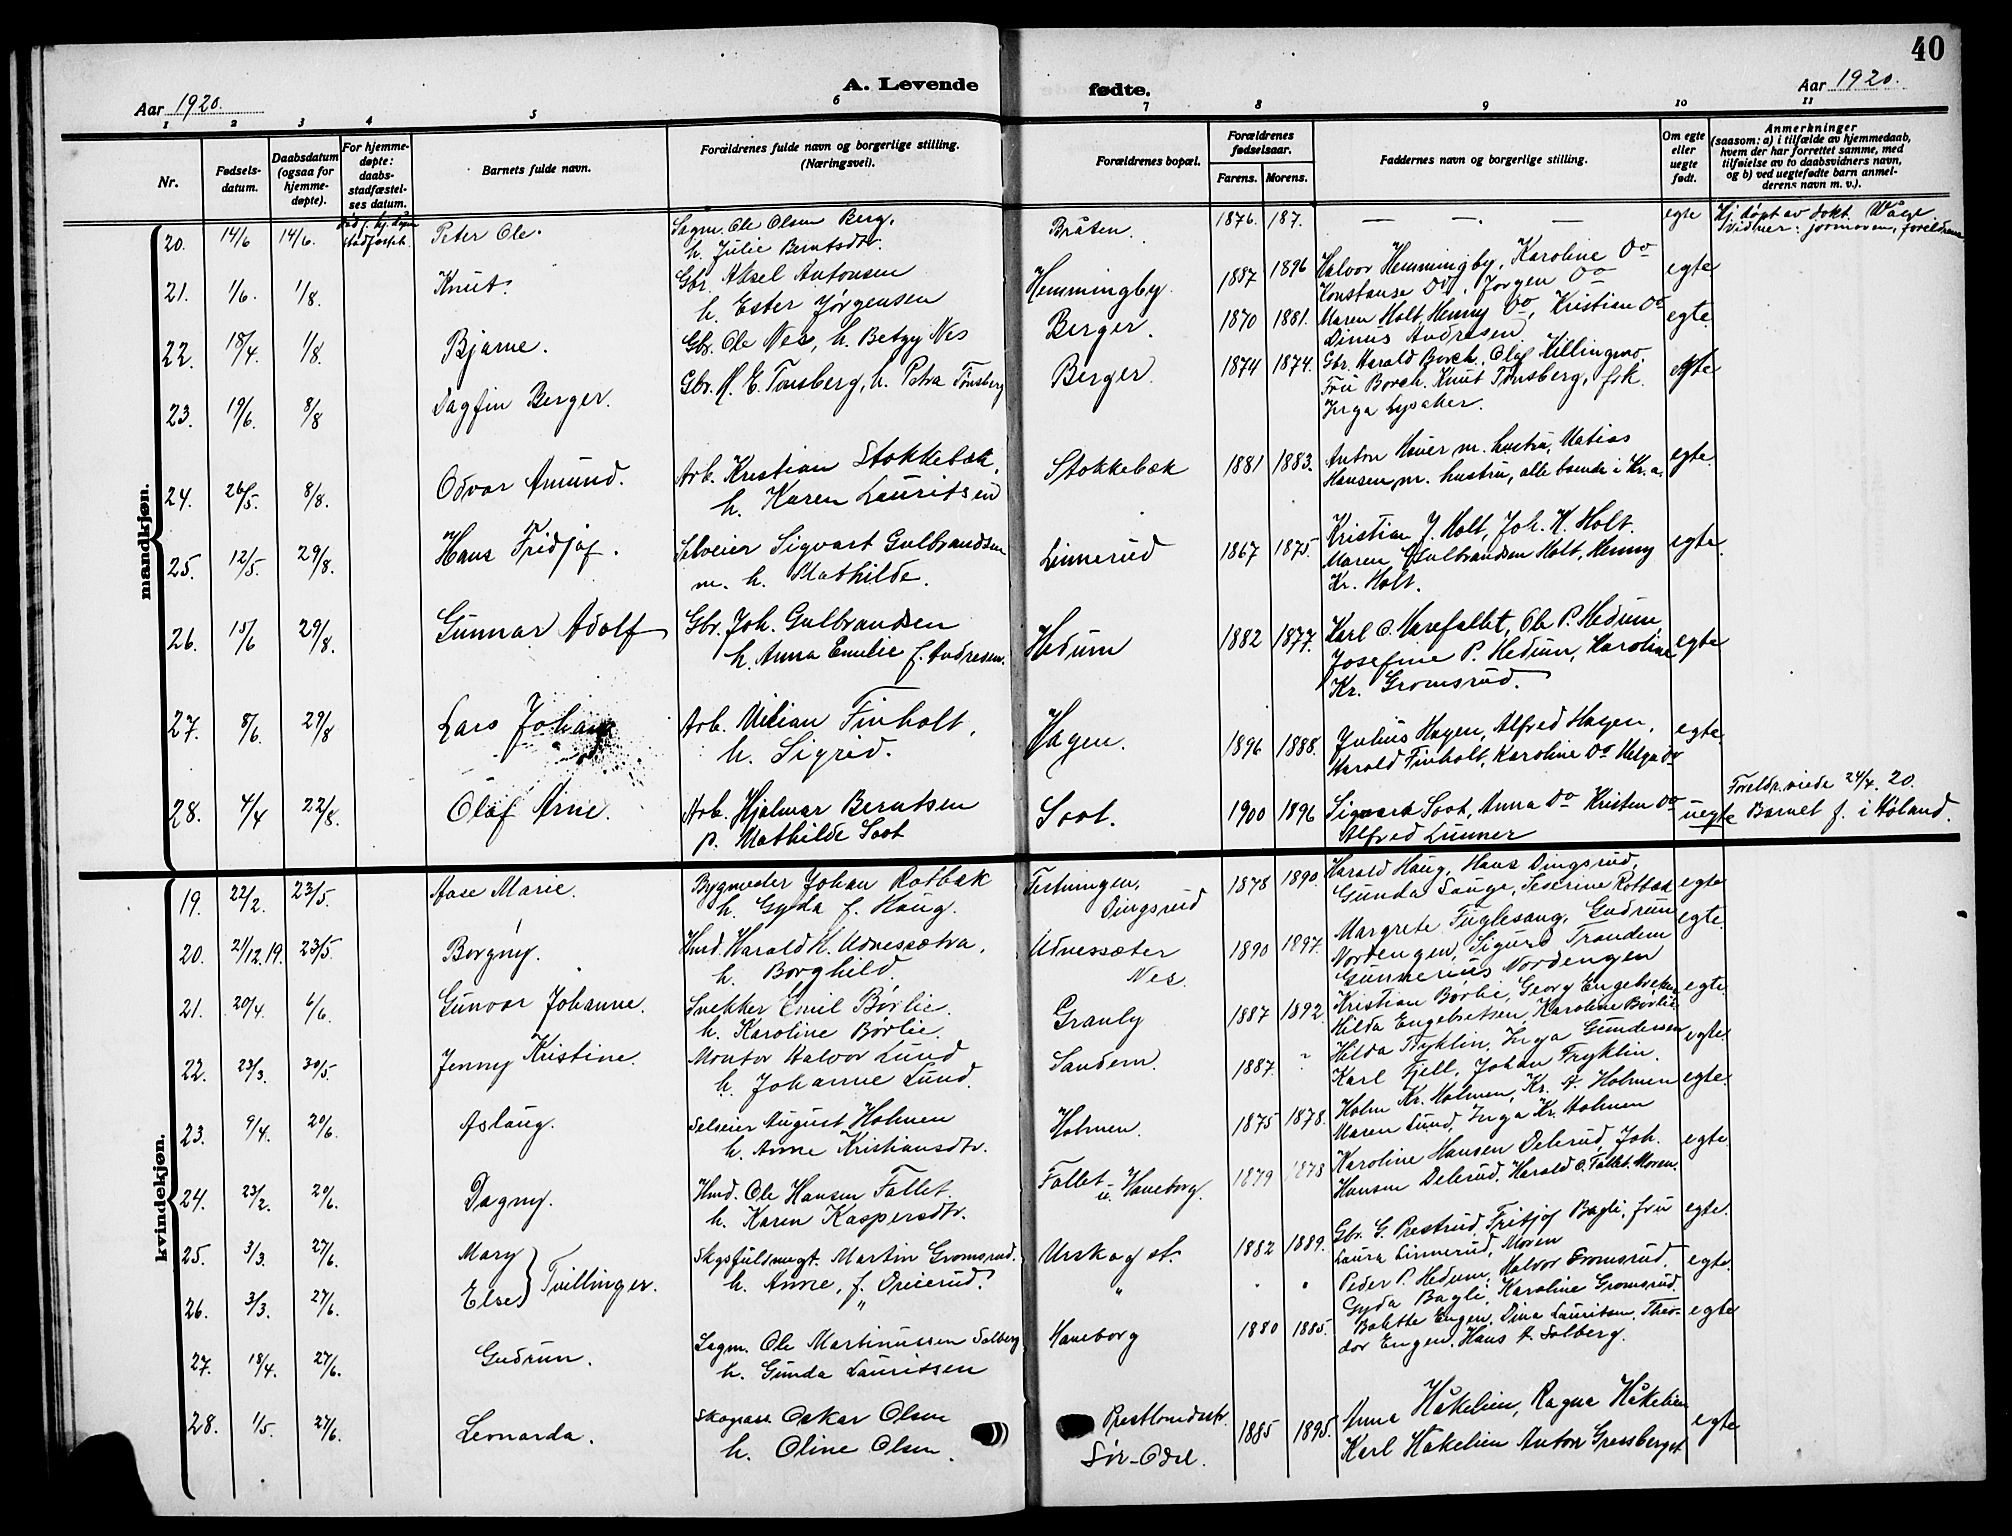 40
Aar 1920.
A. Levende
fødte.
Aar 1920.
1 2 3 4 5 6 7 8 9 10 11
Nr.
Fødsels-
datum.
Daabsdatum
(ogsaa for
hjemme-
døpte).
For hjemme-
døpte:
daabs-
stadfæstel-
ses datum.
Barnets fulde navn.
Forældrenes fulde navn og borgerlige stilling.
(Næringsvei).
Forældrenes bopæl.
Forældrenes
fødselsaar.
Farens. Morens.
Faddernes navn og borgerlige stilling.
Om egte
eller
uegte
født.
Anmerkninger
(saasom: a) i tilfælde av hjemmedaab,
hvem der har forrettet samme, med
tilføielse av to daabsvidners navn,
og b) ved uegtefødte barn anmel-
derens navn m. v.).
mandkjøn.
20. 14/6 14/6. Peter Ole. Sagm. Ole Olsen Berg.
h. Julie Berntsdtr. Bråten. 1876. 187. — — — egte Hj. døpt av dokt. Våge.
Vidner: jormoren, foreldrene
21. 1/6. 1/8. Knut. Gbr. Aksel Antonsen
h. Ester Jørgensen Hemmingby. 1887 1896 Halvor Hemmingby, Karoline Do
Konstanse Do, Jørgen Do egte
22. 18/4. 1/8. Bjarne. Gbr. Ole Nes, h. Betzy Nes Berger. 1870 1881. Maren Holt, Henny Do, Kristian Do
Dinus Andresen egte.
23. 19/6. 8/8 Dagfin Berger. Gbr. H. E. Tønsberg, h. Petra Tønsberg Berger. 1874 1874. Gbr. Harald Borch, Olaf Killingmo,
Fru Borch. Knut Tønsberg, frk.
Inga Lysaker. egte
24. 26/5. 8/8. Odvar Amund. Arb. Kristian Stokkebæk,
h. Karen Lauritsen Stokkebæk 1881 1883. Anton Hauer m. hustru, Matias
Hansen m. hustru, alle boende i Kr.a. egte.
25. 12/5. 29/8. Hans Fridjof. Selveier Sigvart Gulbrandsen
m. h. Mathilde. Linnerud 1867 1875. Kristian J. Holt, Joh. K. Holt.
Maren Gulbrandsen Holt, Henny
Kr. Holt. egte.
26. 15/6 29/8. Gunnar Adolf Gbr. Joh. Gulbrandsen
h. Anna Emilie f. Andresen. Hedum 1882 1877. Karl O. Harefallet, Ole P. Hedum
Josefine P. Hedum, Karoline
Kr. Gromsrud. egte
27. 8/6. 29/8 Lars Johan Arb. Vilian Finholt,
h. Sigrid. Hagen. 1896 1888. Julius Hagen, Alfred Hagen,
Harald Finholt, Karoline Do Helga Do egte.
28. 4/4 22/8. Olaf Arne. Arb. Hjalmar Berntsen
p. Mathilde Soot Soot. 1900 1896 Sigvart Soot, Anna Do Kristen Do
Alfred Lunner uegte Foreldr. viede 24/4. 20.
Barnet f. i Høland.
kvindekjøn.
19. 22/2. 23/5. Aase Marie. Bygmester Johan Rotbæk
h. Gyda f. Haug. Festningen,
Dingsrud 1878 1890. Harald Haug, Hans Dingsrud,
Gunda Lauge, Severine Rotbæk egte
20. 21/12.19. 23/5. Borgny. Hmd. Harald H. Udnessætra,
h. Borghild Udnessæter
Nes. 1890 1897. Margrete Fuglesang, Gudrun
Nordengen, Sigurd Trandem
Gunnerius Nordengen egte.
21. 20/4. 6/6. Gunvor Johanne. Snekker Emil Børlie.
h. Karoline Børlie. Granly 1887 1892. Kristian Børlie, Georg Engebretsen
Hilda Engebretsen, Karoline Børlie egte.
22. 23/3. 30/5. Jenny Kristine. Montør Halvor Lund
h. Johanne Lund. Sandem. 1887. Hilda Fryklin, Inga Gundersen
Karl Fjell, Johan Fryklin. egte.
23. 9/4. 20/6. Aslaug. Selveier August Holmen
h. Anne Kristiansdtr. Holmen. 1875 1878. Holm Kr. Holmen, Kr. A. Holmen
Maren Lund, Inga Kr. Holmen egte.
24. 23/2. 20/6. Dagny. Hmd. Ole Hansen Fallet.
h. Karen Kaspersdtr. Fallet
u. Haneborg. 1879 1878 Karoline Hansen Delerud, Joh.
Hansen Delerud, Harald O. Fallet. Moren. egte.
25. 3/3. 27/6. Mary } Tvillinger. Skogsfuldmegt. Martin Gromsrud.
h. Anne, f. Dreierud. Urskog st. 1882 1889. Gbr. G. Prestrud, Fritjof Bagli, fru
Laura Linnerud, Moren egte.
26. 3/3. 27/6. Else } " " " " Peder P. Hedum, Halvor Gromsrud
Gyda Bagli, Karoline Gromsrud. egte.
27. 18/4. 27/6. Gudrun. Sagm. Ole Martinussen Solberg
h. Gunda Lauritsen Haneborg 1880 1885. Bolette Engen, Dina Lauritsen, Theo-
dor Engen, Hans A. Solberg. egte
28. 1/5. 27/6. Leonarda. Skogsarb. Oskar Olsen
h. Oline Olsen.
Sør-Odal. 1885 1895. Anna Håkelien, Ragna Håkelien
Karl Håkelien Anton Gressberget egte